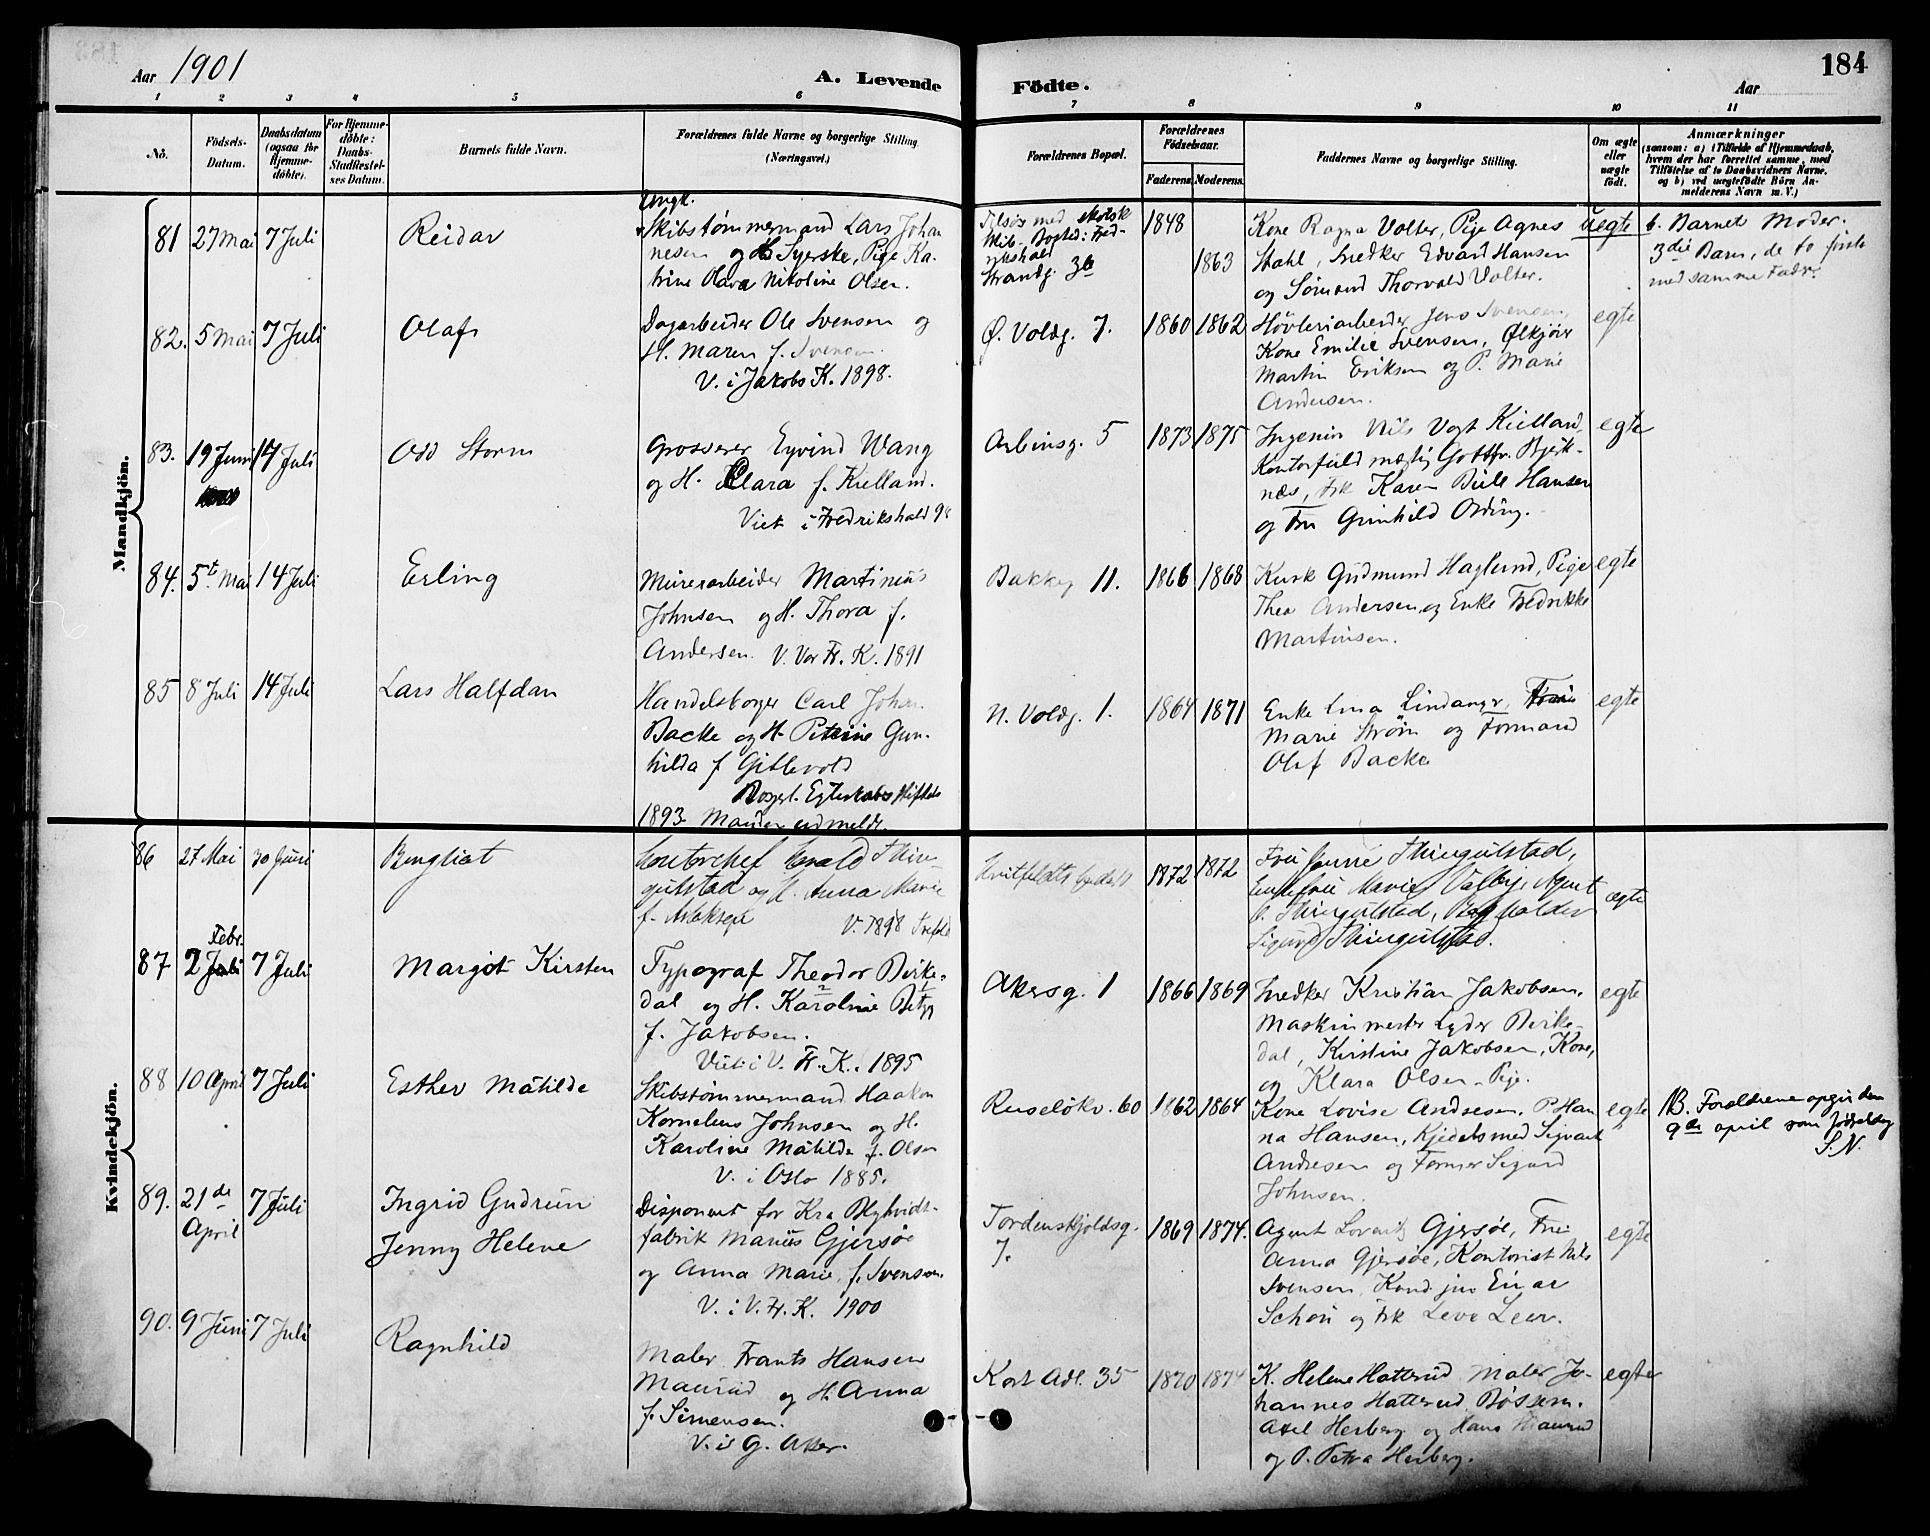 Aar 1901
A. Levende
Fødte.
Aar
184
1 2 3 4 5 6 7 8 9 10 11
No.
Fødsels-
Datum.
Daabsdatum
(ogsaa for
Hjemme-
døbte).
For Hjemme-
døbte:
Daabs-
Stadfæstel-
ses Datum.
Barnets fulde Navn.
Forældrenes fulde Navne og borgerlige Stilling.
(Næringsvei.)
Forældrenes Bopæl.
Forældrenes
Fødselsaar.
Faderens. Moderens.
Faddernes Navne og borgerlige Stilling.
Om ægte
eller
uægte
født.
Anmærkninger
(saasom: a) i Tilfælde af Hjemmedaab,
hvem der har forrettet samme, med
Tilføielse af to Daabsvidners Navne,
og b) ved uægtefødte Børn An-
melderens Navn m. V.)
Mandkjön.
81 27 Mai 7 Juli Reidar
Ungk.
Skibstømmermand Lars Johan
nesen og Syerske, Pige Ka-
trine Olava Nikoline Olsen.
Tilsøs med skotsk
Skib. Bosted: Fred-
rikshald
Strandg. 36
1848
1863
Kone Ragna Volter, Pige Agnes
Stahl, Snedker Edvard Hansen
og Sømand Thorvald Volter.
uegte
b. Barnets Moder.
3die Barn, de to første
med samme Fader.
82. 5 Mai 7 Juli Olaf
Dagarbeider Ole Svensen og
H. Maren f. Svensen.
V. i Jakobs K. 1898.
Ø. Voldg. 7. 1860 1862
Høvleriarbeider Jens Svensen,
Kone Emilie Svensen, Ølkjører
Martin Eriksen og P. Marie
Andersen.
egte
83. 19 Juni 14 Juli Odd Storm
Grosserer Eyvind Wang
og H. Clara f. Kielland.
Viet i Fredrikshald 98
Arbinsg. 5 1873 1875
Ingeniør Nils Vogt Kielland,
Kontorfuldmægtig Gottfr. Bjerk-
næs, Frk Karen Bulle Hansen
og Fru Gunhild Ording.
egte
84. 5t Mai 14 Juli Erling
Murerarbeider Martinius
Johnsen og H. Thora f.
Andersen. V. Vor Fr. K. 1891
Bakkeg 11. 1866 1868
Kusk Gudmund Haglund, Pige
Thea Andersen og Enke Fredrikke
Martinsen.
egte
85 8 Juli 14 Juli Lars Halfdan
Handelsborger Carl Johan
Backe og H. Petrine Gun-
hilda f Gitlevold
Borgerl. Egteskabs Stiftelse
1893. Manden udmeldt.
N. Voldg. 1. 1864 1871
Enke Lina Lindanger,
Marie Strøm og Formand
Olaf Backe
egte
Kvindekjön.
86 27 Mai 30 Juni Bergliot
Kontorchef Harald Thin-
gulstad og H. Anna Marie
f. Aslaksen V. 1898 Trefold
Hvitfeldts 1872 1872
Fru Jenny Thingulstad,
Enkefru Marie Valby, Agent
O. Thingulstad, Bogholder
Sigurd Thingulstad.
ægte
87 2 Febr. Juli 7 Juli Margot Kirsten
Typograf Theodor Birke-
dal og H. Karoline Betzy
f. Jakobsen.
Viet i V. Fr. K. 1895
Akersg. 1 1866 1869
Snedker Kristian Jakobsen,
Maskinmester Lyder Birke-
dal, Kirstine Jakobsen, Kone,
og Klara Olsen. Pige.
egte
88 10 April 7 Juli Esther Matilde
Skibstømmermand Haakon
Kornelius Johnsen og H.
Karoline Matilde f. Olsen
V. i Oslo 1885.
Ruseløkv. 60 1862 1864
Kone Lovise Andresen, P. Han
na Hansen, Kjedelsmed Sigvart
Andresen og Former Sigurd
Johnsen.
egte
NB. Forældrene opgir den
9de april som fødseldag
S.N.
89. 21de April 7 Juli Ingrid Gudrun
Jenny Helene
Disponent for Kra Blyhvidt-
fabrik Marius Gjersøe
og Anna Marie, f. Svensen.
V. i V. Fr. K. 1900
Tordenskjoldsg.
7. 1869 1874.
Agent Lorentz Gjersøe, Frue
Anna Gjersøe, Kontorist Nils
Svensen, Kand. jur Einar
Schøn og Frk Leva Leer.
egte
90. 9 Juni 7 Juli Ragnhild
Maler Frants Hansen
Maurud og H. Anna
f. Simensen.
V. i G. Aker.
Kort Adl. 35 1870 1874
K. Helene Hatterud, Maler Jo-
hannes Hatterud, Bøssem.
Axel Herberg og Hans Maurud
og P. Petra Herberg.
egte